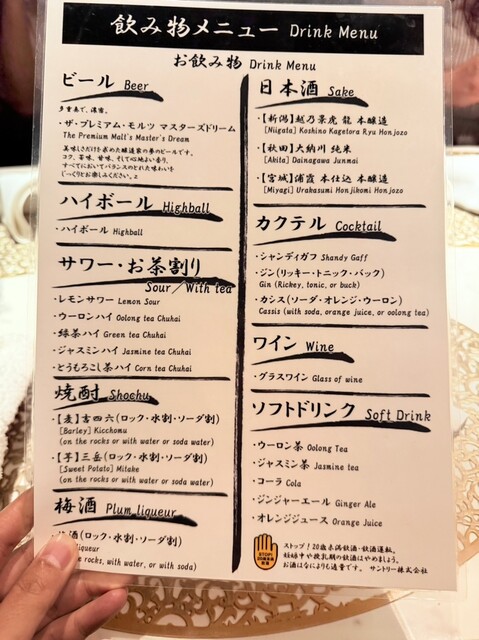 飲み物メニュー Drink Menu
お飲み物 Drink Menu
ビール Beer
多重奏で、濃密。
・ザ・プレミアム・モルツ マスターズドリーム
The Premium Malt's Master's Dream
美味しさだけを求めた醸造家の夢のビールです。
コク、苦味、甘味、そして心地よい香り。
すべてにおいてバランスのとれた味わいを
じっくりとお楽しみください。
ハイボール Highball
・ハイボール Highball
サワー・お茶割り
Sour／With tea
・レモンサワー Lemon Sour
・ウーロンハイ Oolong tea Chuhai
・緑茶ハイ Green tea Chuhai
・ジャスミンハイ Jasmine tea Chuhai
・とうもろこし茶ハイ Corn tea Chuhai
焼酎 Shochu
・【麦】吉四六(ロック・水割・ソーダ割)
[Barley] Kicchomu
(on the rocks or with water or soda water)
・【芋】三岳(ロック・水割・ソーダ割)
[Sweet Potato] Mitake
(on the rocks or with water or soda water)
梅酒 Plum liqueur
梅酒(ロック・水割・ソーダ割)
liqueur
rocks, with water, or with soda)
日本酒 Sake
・【新潟】越乃景虎 龍 本醸造
[Niigata] Koshino Kagetora Ryu Honjozo
・【秋田】大納川 純米
[Akita] Dainagawa Junmai
・【宮城】浦霞 本仕込 本醸造
[Miyagi] Urakasumi Honjikomi Honjozo
カクテル Cocktail
・シャンディガフ Shandy Gaff
・ジン(リッキー・トニック・バック)
Gin (Rickey, tonic, or buck)
・カシス(ソーダ・オレンジ・ウーロン)
Cassis (with soda, orange juice, or oolong tea)
ワイン Wine
・グラスワイン Glass of wine
ソフトドリンク Soft Drink
・ウーロン茶 Oolong Tea
・ジャスミン茶 Jasmine tea
・コーラ Cola
・ジンジャーエール Ginger Ale
・オレンジジュース Orange Juice
STOP!
ストップ！20歳未満飲酒・飲酒運転。
妊娠中や授乳期の飲酒はやめましょう。
お酒はなによりも適量です。 サントリー株式会社